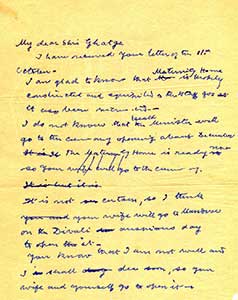 My dear Shri Ghatge
I have received your letter of the 11th
October.
I am glad to know that Maternity Home is
constructed and equipped &
It has been
I do not know that Health Minister will
go to the ceremony opening about December
The Maternity Home is ready now
so your wife will go to the ceremony.
It is but it is
It is not so certain, so I think
you and your wife will go to
on the Divali auspicious day
to open it.
You know that I am not well and
I shall die soon, so your
wife and yourself go to open it